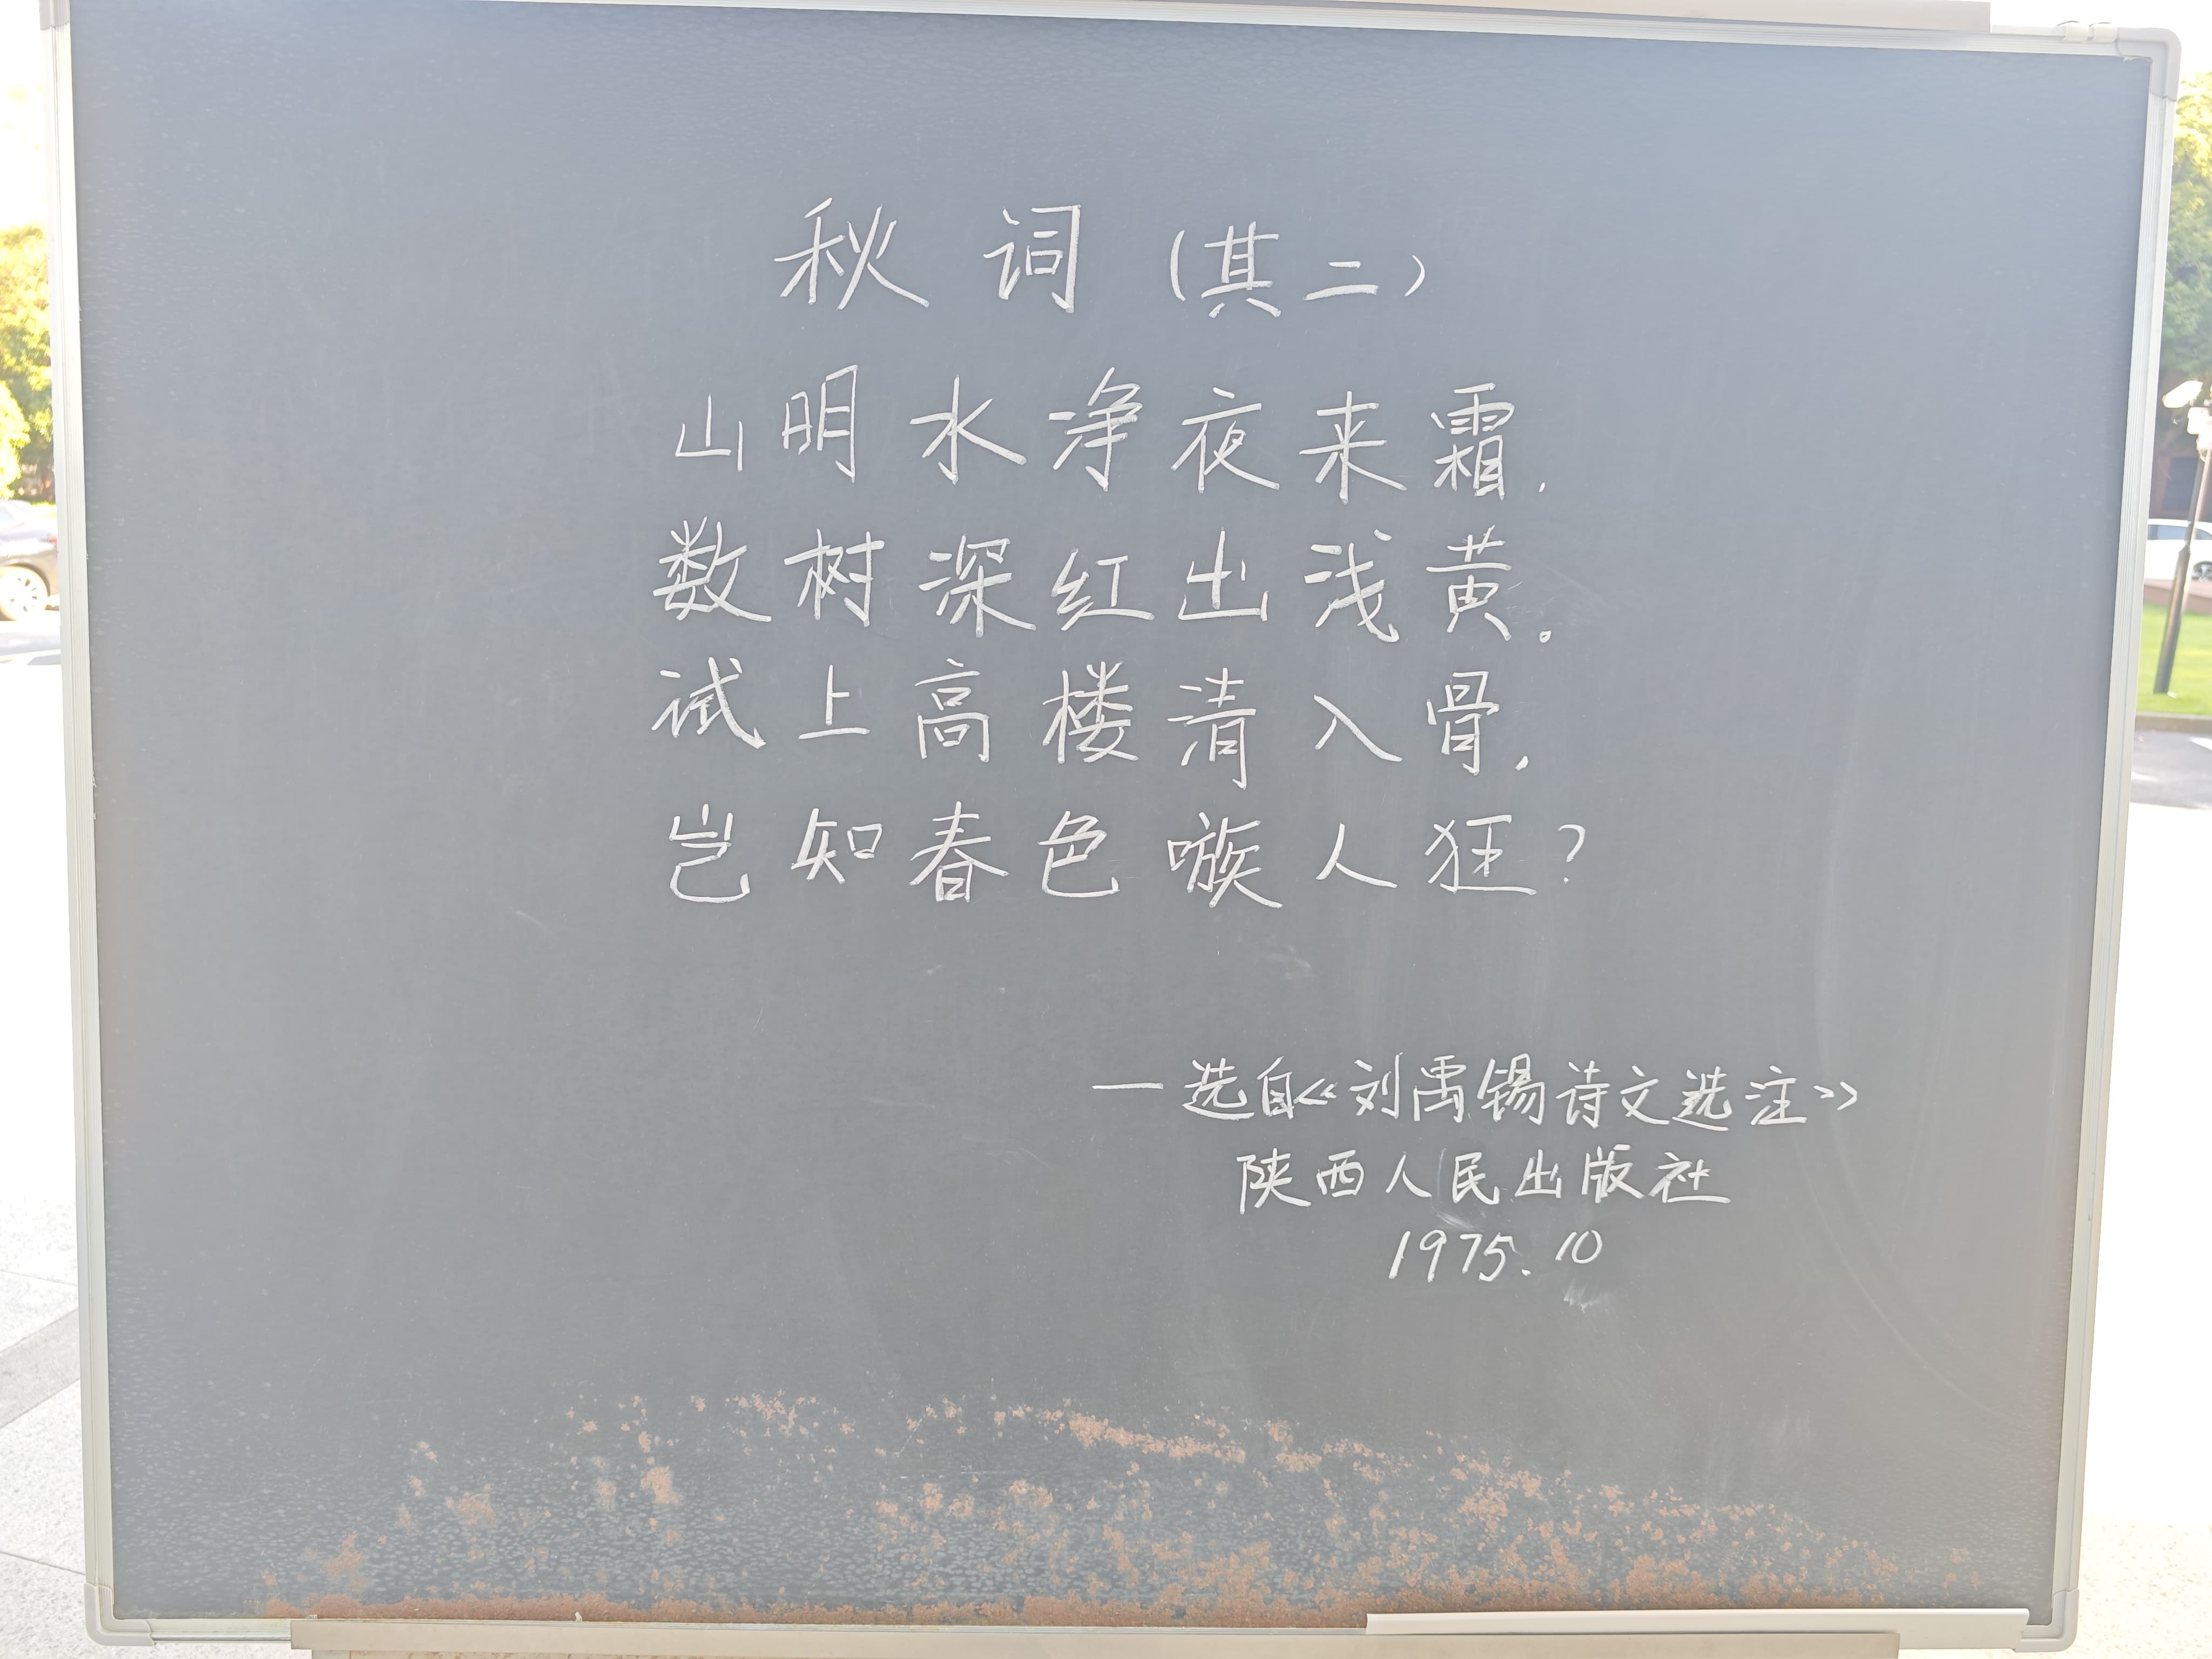 秋词（其二）
山明水净夜来霜，
数树深红出浅黄。
试上高楼清入骨，
岂知春色嗾人狂？
—选自《刘禹锡诗文选注》
陕西人民出版社
1975.10